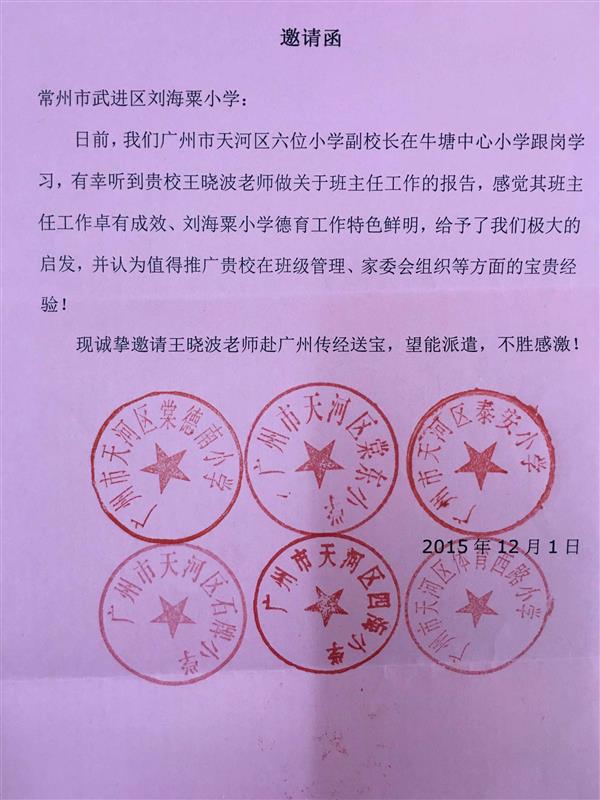 邀请函
常州市武进区刘海粟小学：
日前，我们广州市天河区六位小学副校长在牛塘中心小学跟岗学
习，有幸听到贵校王晓波老师做关于班主任工作的报告，感觉其班主
任工作卓有成效、刘海粟小学德育工作特色鲜明，给予了我们极大的
启发，并认为值得推广贵校在班级管理、家委会组织等方面的宝贵经
验！
现诚挚邀请王晓波老师赴广州传经送宝，望能派遣，不胜感激！
广州市天河区棠德南小学
广州市天河区棠东小学
广州市天河区泰安小学
2015 年 12 月 1 日
广州市天河区石牌小学
广州市天河区四海小学
广州市天河区体育西路小学